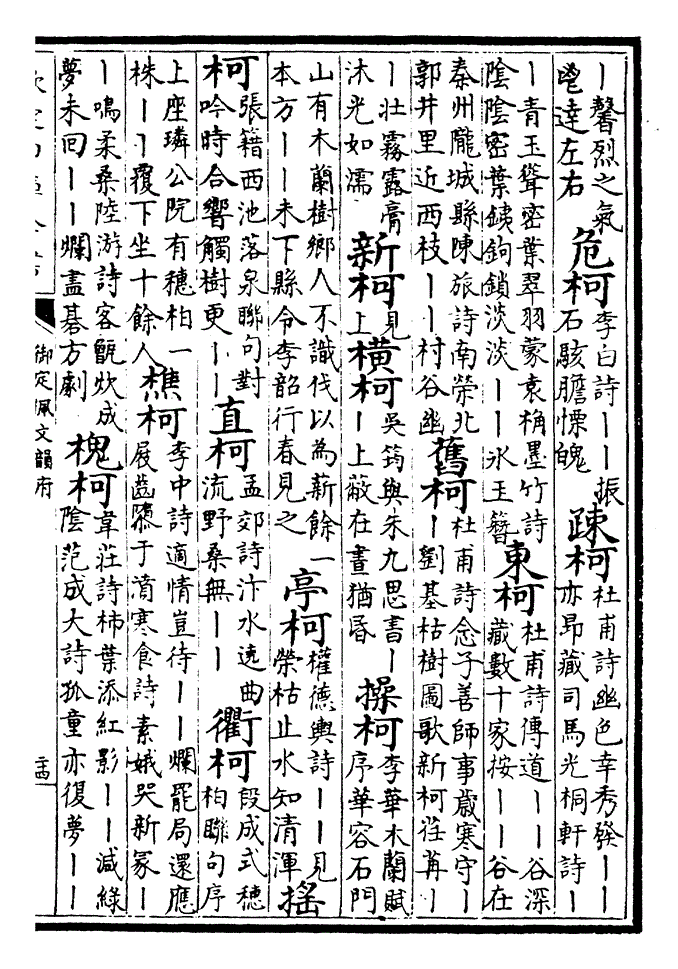 丨馨烈之氣鬯達左右 危柯 李白詩丨丨振石駭膽慄魄 疎柯 杜甫詩幽色幸秀發丨丨亦昂藏司馬光桐軒詩丨
丨青玉聳密葉翠羽蒙袁桷墨竹詩陰陰密葉銕鉤鎖淡淡丨丨氷玉簪 東柯 杜甫詩傳道丨丨谷深藏數十家按丨丨谷在
秦州隴城縣陳旅詩南榮北郭井里近西枝丨丨村谷幽 舊柯 杜甫詩念子善師事歲寒守丨丨劉基枯樹圖歌新柯荏苒丨
丨壯霧露膏沐光如濡 新柯 見上 橫柯 吳筠與朱九思書丨丨上蔽在晝猶昏 操柯 李華木蘭賦序華容石門
山有木蘭樹鄉人不識伐以為薪餘一本方丨丨未下縣令李韶行春見之 亭柯 權德輿詩丨丨見榮枯止水知清渾 搖
柯 張籍西池落泉聯句對吟時合響觸樹更丨丨 直柯 孟郊詩汴水逶曲流野桑無丨丨 衢柯 段成式穗柏聯句序
上座璘公院有穗柏一株丨丨覆下坐十餘人 樵柯 李中詩適情豈待丨丨爛罷局還應屐齒隳于濆寒食詩素娥哭新冢丨
丨鳴柔桑陸游詩客甑炊成夢未回丨丨爛盡碁方劇 槐柯 韋莊詩柿葉添紅影丨丨減綠陰范成大詩孤童亦復夢丨丨
御定佩文韻府